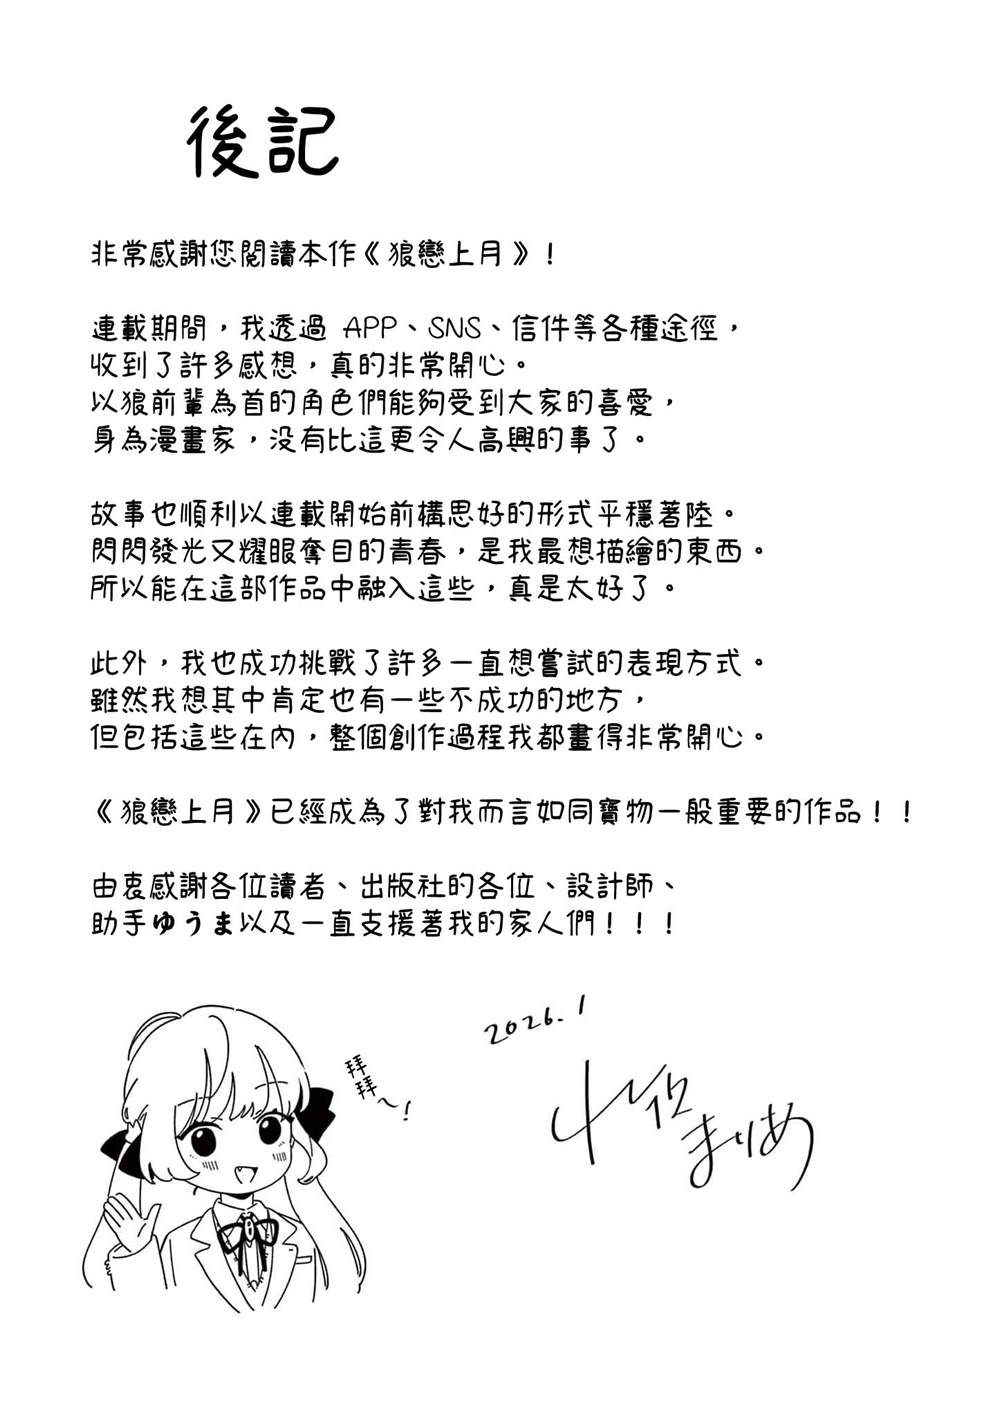 後記
非常感謝您閱讀本作《狼戀上月》！
連載期間，我透過 APP、SNS、信件等各種途徑，
收到了許多感想，真的非常開心。
以狼前輩為首的角色們能夠受到大家的喜愛，
身為漫畫家，沒有比這更令人高興的事了。
故事也順利以連載開始前構思好的形式平穩著陸。
閃閃發光又耀眼奪目的青春，是我最想描繪的東西。
所以能在這部作品中融入這些，真是太好了。
此外，我也成功挑戰了許多一直想嘗試的表現方式。
雖然我想其中肯定也有一些不成功的地方，
但包括這些在內，整個創作過程我都畫得非常開心。
《狼戀上月》已經成為了對我而言如同寶物一般重要的作品！！
由衷感謝各位讀者、出版社的各位、設計師、
助手ゆうま以及一直支援著我的家人們！！！
拜拜~！
2026.1
まりあ